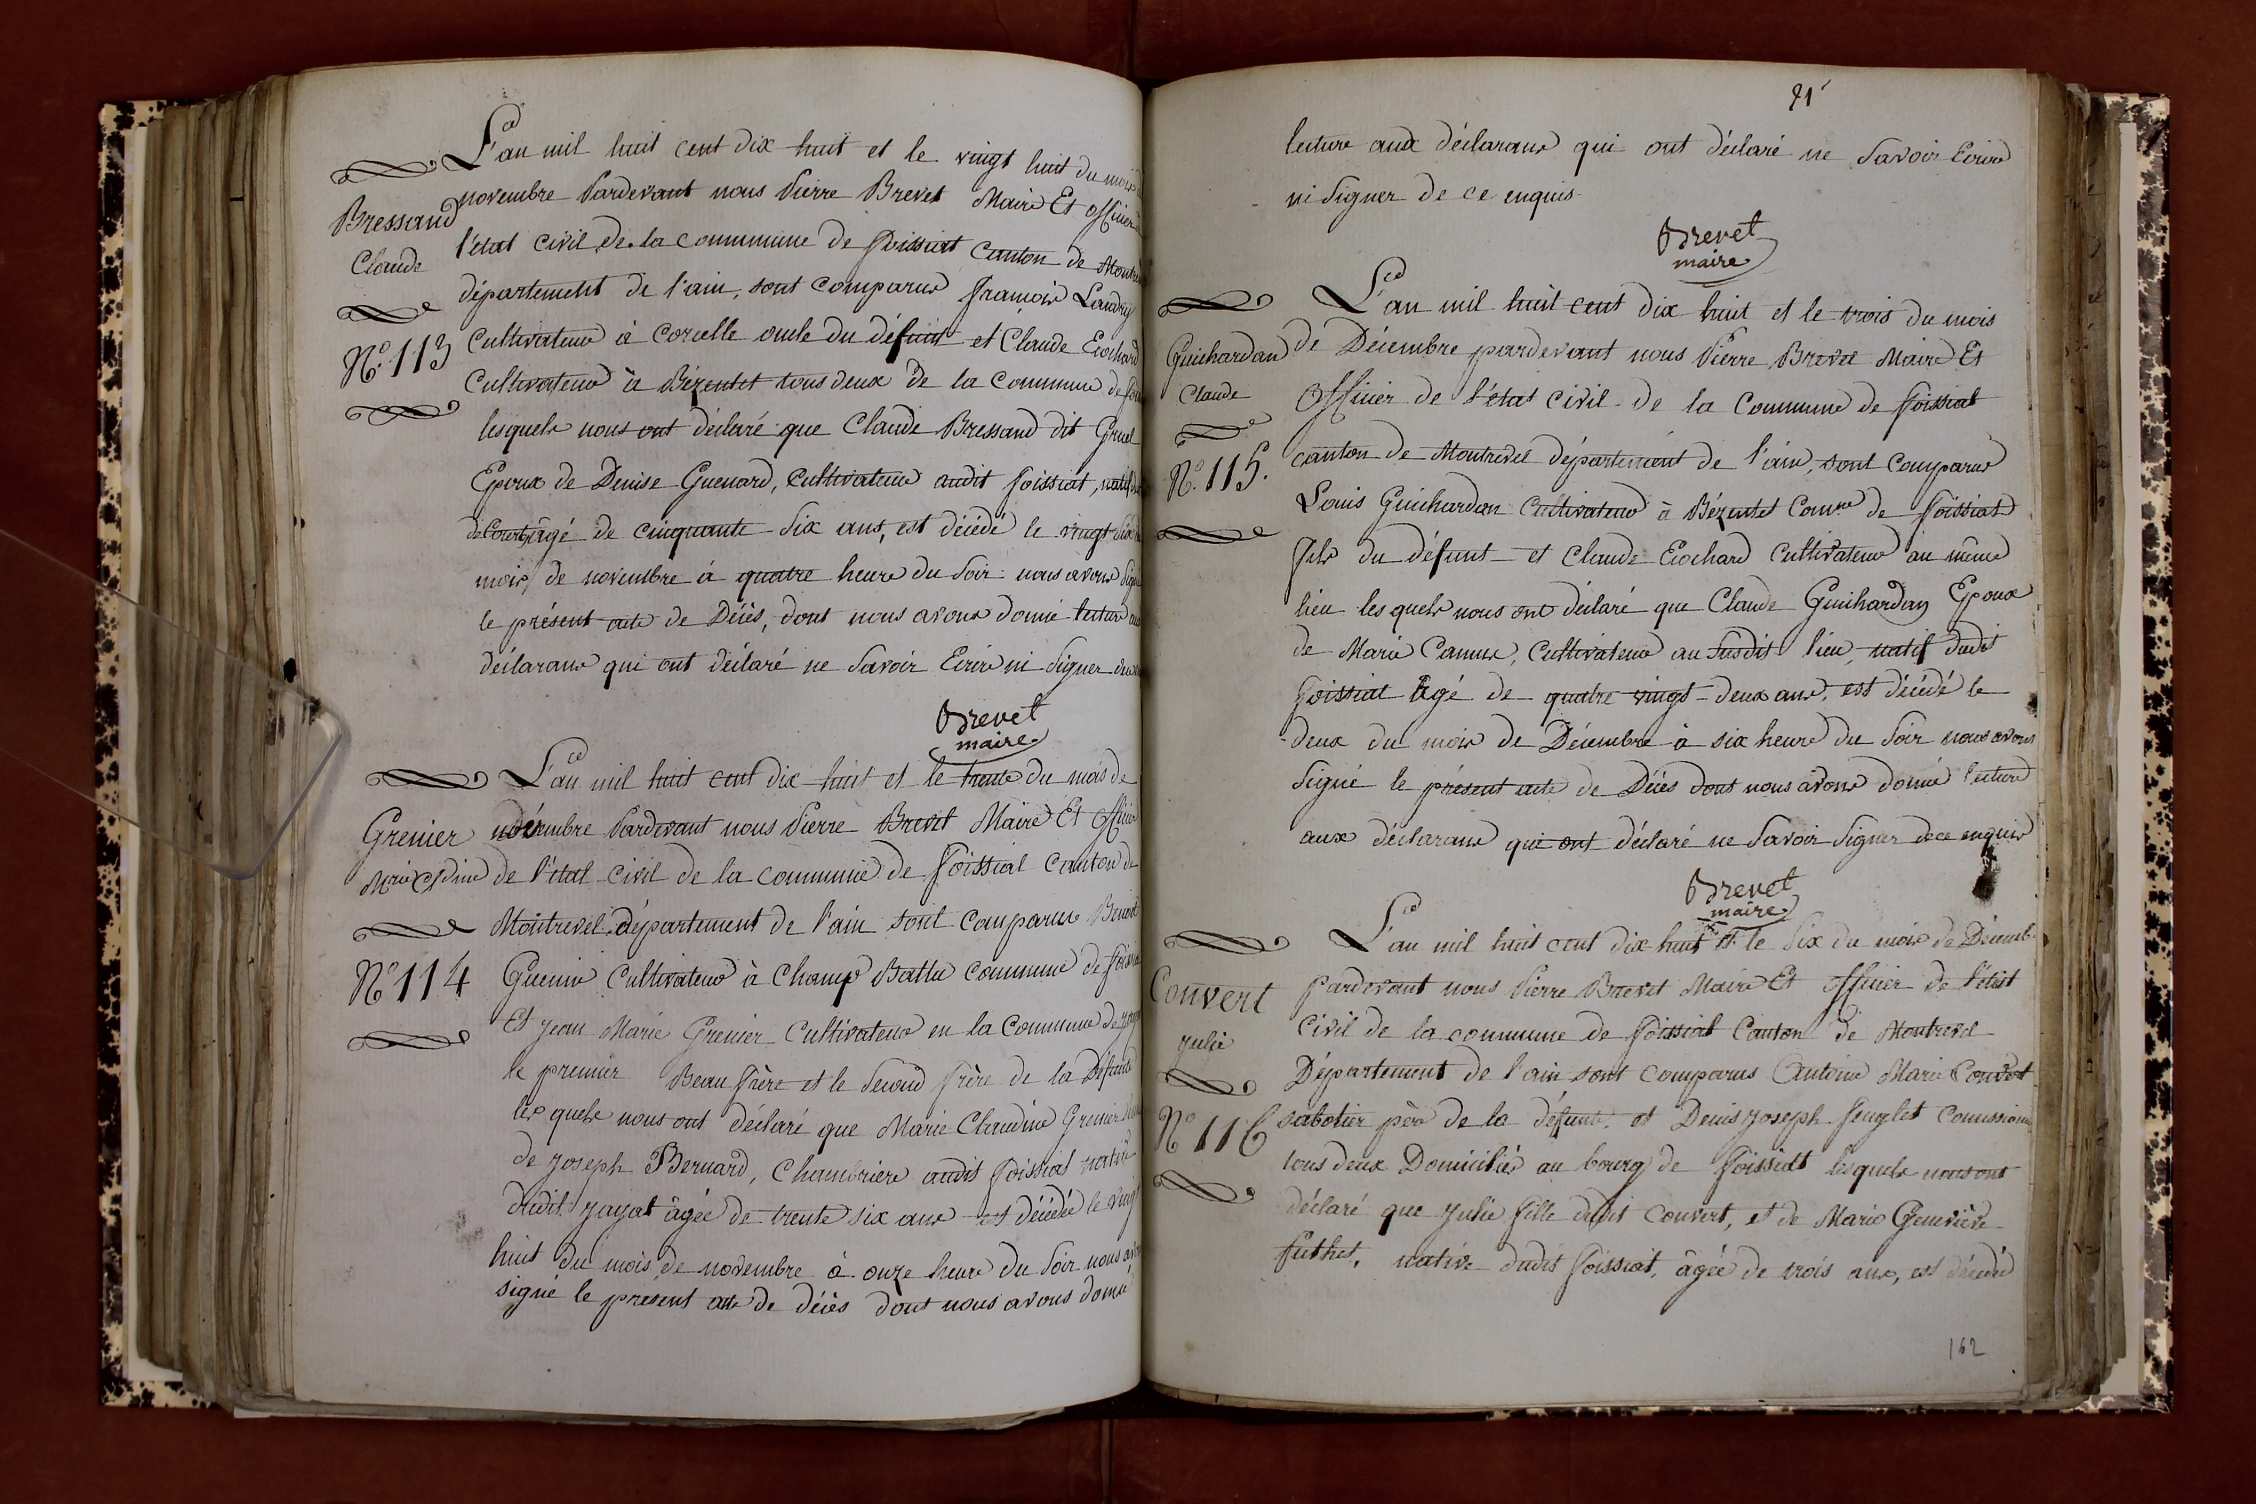 L'an mil huit cent dix huit et le vingt huit du mois
novembre Pardevant nous Pierre Brevet Maire Et officier
l'état civil de la commune de foissiat Canton de Montre
département de l'ain, sont comparus francois Laudry
Cultivateur à corcelle oncle du défunt et Claude Eochard
Cultivateur à Bézentet tous deux de la commune de foi
lesquels nous ont déclaré que Claude Bressand dit Gruel
Epoux de Denise Guenard, Cultivateur audit foissiat, natif
âgé de cinquante six ans, est décédé le vingt six
mois de novembre à quatre heure du soir nous avons signé
le présent acte de Décès, dont nous avons donné lecture aux
déclarans qui ont déclaré ne Savoir Ecrire ni Signer
Brevet
maire
Bressand
Claude
N.º 113
L'an mil huit cent dix huit et le trente du mois de
novembre Pardevant nous Pierre Brevet Maire Et officier
de l'état civil de la commune de foissiat Canton de
Montrevel département de l'ain sont comparus Benoit
Guenin Cultivateur à Champ Battu commune de foissiat
Et jean Marie Grenier Cultivateur en la Commune de
le premier Beau frère et le Second frère de la Défunte
lesquels nous ont déclaré que Marie Claudine Grenier
de joseph Bernard, Chambrière audit foissiat native
dudit jayat âgée de trente six ans est décédée le vingt
huit du mois de novembre à onze heure du Soir nous avons
signé le présent acte de décès dont nous avons donné
Grenier
Marie Cdine
Nº 114
21
lecture aux déclarans qui ont déclaré ne Savoir Ecrire
ni Signer de ce enquis.
Brevet
maire
L'an mil huit cent dix huit et le trois du mois
de Décembre pardevant nous Pierre Brevet Maire Et
Officier de l'état civil de la Commune de foissiat
canton de Montrevel département de l'ain, sont comparus
Louis Guichardan Cultivateur à Bézentet Comne de foissiat
fils du défunt et Claude Eochard Cultivateur au même
lieu lesquels nous ont déclaré que Claude Guichardan Epoux
de Marie Camus, Cultivateur au susdit lieu, natif dudit
foissiat âgé de quatre vingt deux ans, est décédé le
deux du mois de Décembre à six heure du Soir nous avons
Signé le présent acte de Décès dont nous avons donné lecture
aux déclarans qui ont déclaré ne Savoir Signer de ce enquis
Brevet
maire
Guichardan
Claude
N.º 115.
L'an mil huit cent dix huit et le six du mois de Décemb.
pardevant nous Pierre Brevet Maire Et officier de l'état
civil de la commune de foissiat Canton de Montrevel
Département de l'ain sont comparus Antoine Marie Convert
sabotier père de la défunte et Denis joseph
tous deux Domiciliés au bourg de foissiat lesquels nous ont
déclaré que julie fille dudit Convert, et de Marie Genevieve
futhet, native dudit foissiat, âgée de trois ans, est décédé
Convert
julie
Nº 116
162